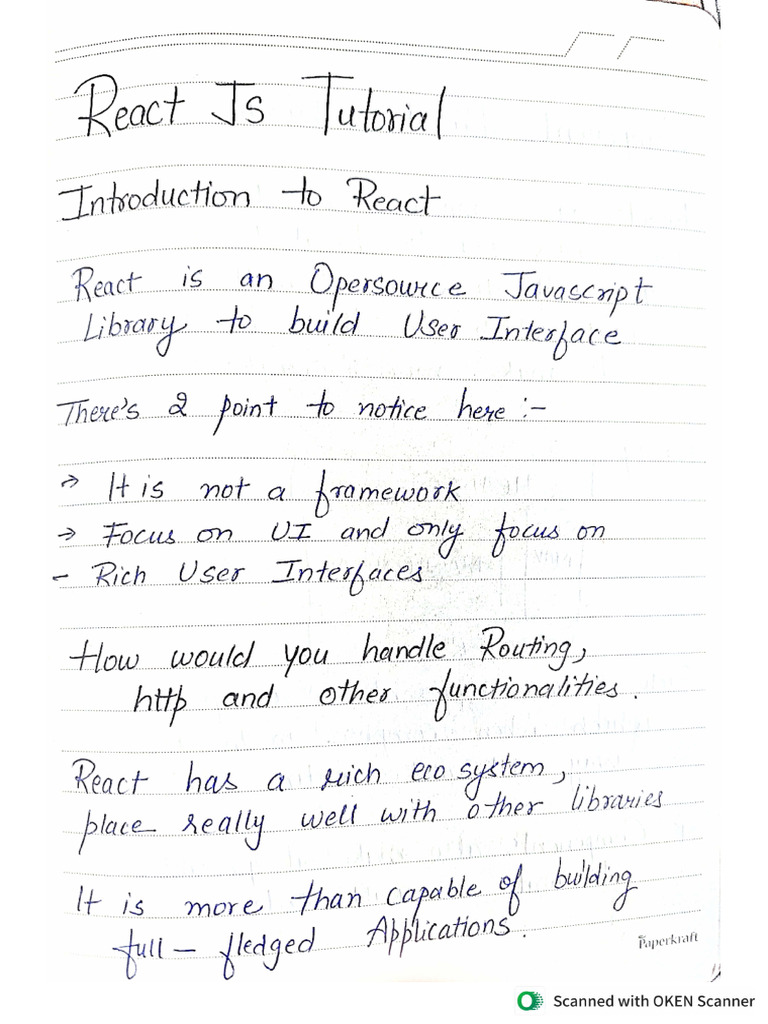 React JS Tutorial
Introduction to React
React is an Opersource Javascript
Library to build User Interface
There's 2 point to notice here :-
→ It is not a framework
→ Focus on UI and only focus on
- Rich User Interfaces
How would you handle Routing,
http and other functionalities.
React has a rich eco system,
place really well with other libraries
It is more than capable of building
full - fledged Applications.
Paperkraft
Scanned with OKEN Scanner